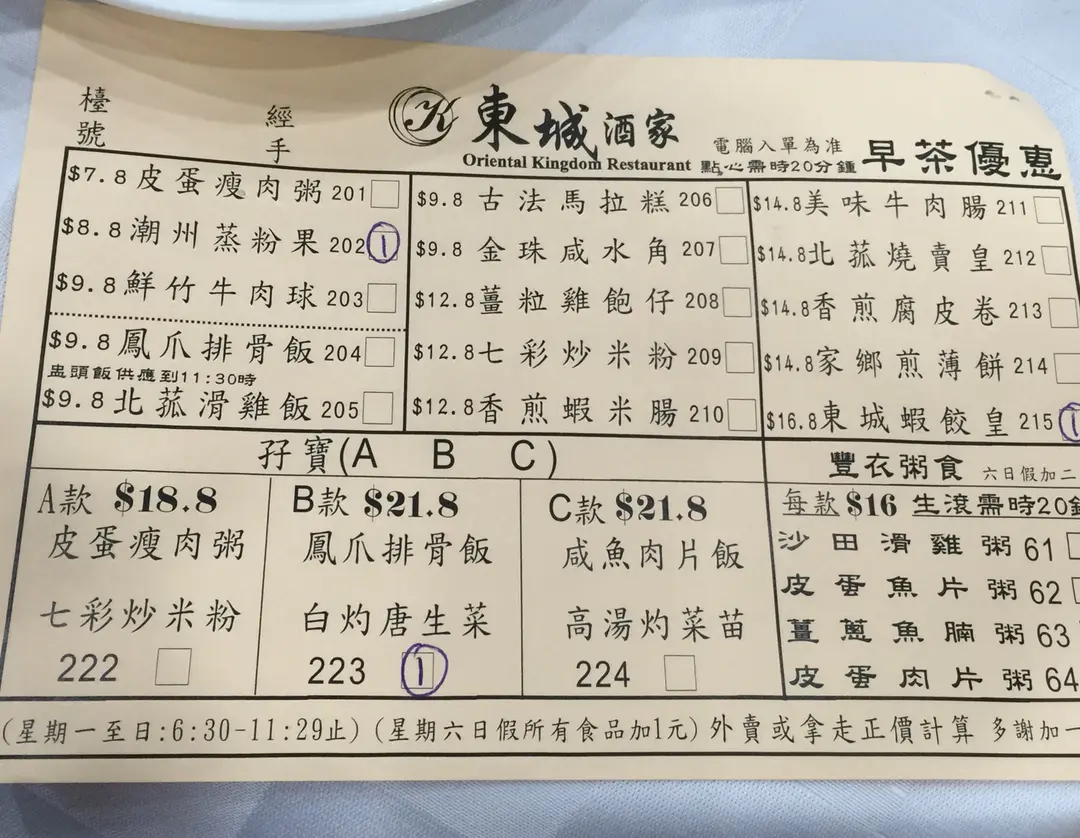 檯號
經手
K
東城酒家
Oriental Kingdom Restaurant
電腦入單為准
點心需時20分鐘
早茶優惠
$7.8 皮蛋瘦肉粥 201
$8.8 潮州蒸粉果 202 1
$9.8 鮮竹牛肉球 203
$9.8 鳳爪排骨飯 204
盅頭飯供應到11:30時
$9.8 北菰滑雞飯 205
$9.8 古法馬拉糕 206
$9.8 金珠咸水角 207
$12.8 薑粒雞飽仔 208
$12.8 七彩炒米粉 209
$12.8 香煎蝦米腸 210
$14.8 美味牛肉腸 211
$14.8 北菰燒賣皇 212
$14.8 香煎腐皮卷 213
$14.8 家鄉煎薄餅 214
$16.8 東城蝦餃皇 215 1
孖寶(A B C)
A款 $18.8
皮蛋瘦肉粥
七彩炒米粉
222
B款 $21.8
鳳爪排骨飯
白灼唐生菜
223 1
C款 $21.8
咸魚肉片飯
高湯灼菜苗
224
豐衣粥食 六日假加二
每款 $16 生滾需時20
沙田滑雞粥 61
皮蛋魚片粥 62
薑蔥魚腩粥 63
皮蛋肉片粥 64
(星期一至日:6:30-11:29止) (星期六日假所有食品加1元) 外賣或拿走正價計算 多謝加一